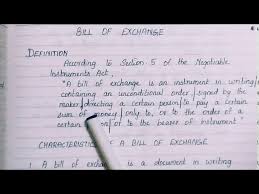 BILL OF EXCHANGE
DEFINITION
According to Section 5 of the Negotiable
Instruments Act,
"A bill of exchange is an instrument in writing/
containing an unconditional order/signed by the
maker/directing a certain person/to pay a certain
sum of money/only to, or to the order of a
certain /or to the bearer of instrument.
CHARACTERISTICS OF A BILL OF EXCHANGE
1. A bill of exchange is a document in writing